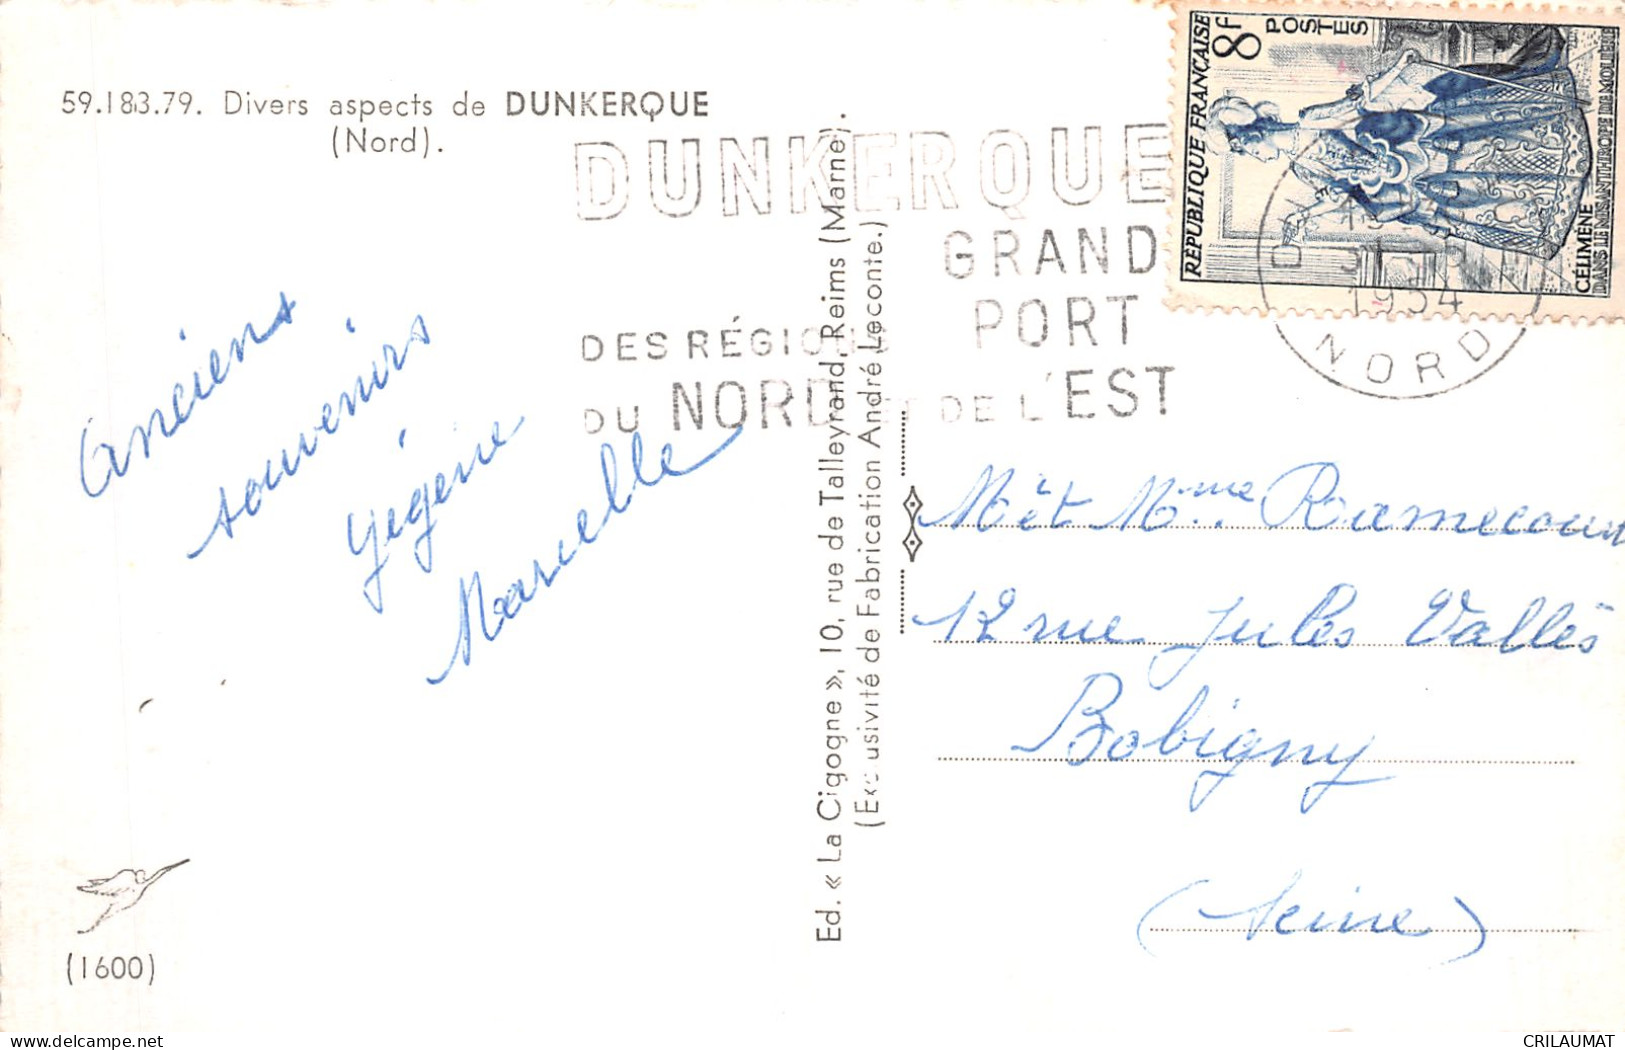 59.183.79. Divers aspects de DUNKERQUE
(Nord).
DUNKERQUE
GRAND
PORT
DES RÉGIONS
DU NORD ET DE L'EST
RÉPUBLIQUE FRANÇAISE
8F
POSTES
CÉLIMÈNE
DANS LE MISANTHROPE DE MOLIÈRE
1954
NORD
Anciens
souvenirs
Marcelle
Ed. « La Cigogne », 10, rue de Talleyrand, Reims (Marne).
(Exclusivité de Fabrication André Leconte.)
M et Mme Ramecourt
12 rue Jules Vallès
Bobigny
(Seine)
(1600)
CRILAUMAT